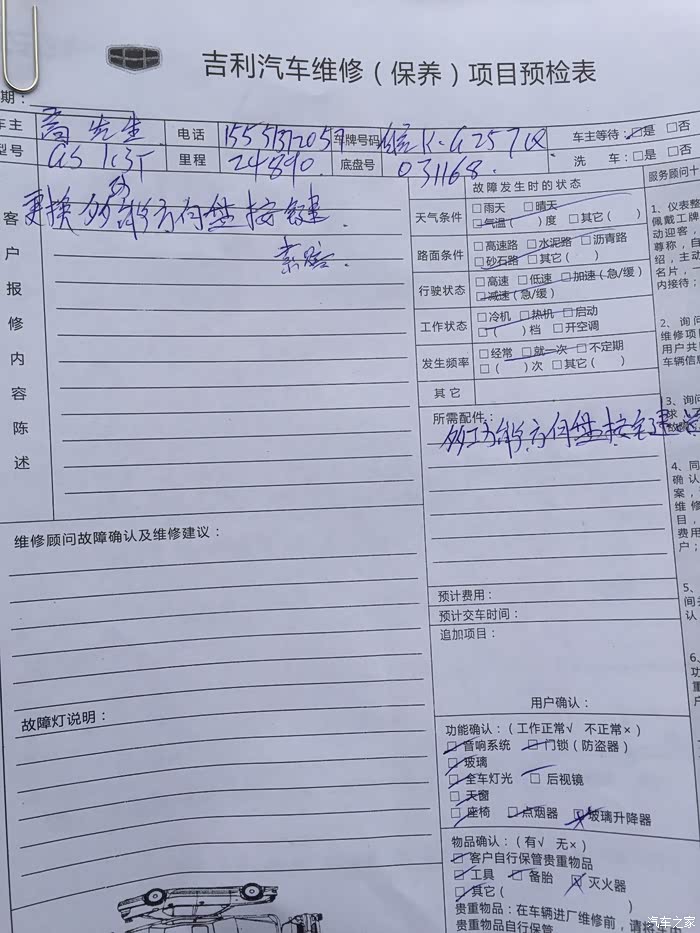 吉利汽车维修（保养）项目预检表
期：
车主 高先生 电话 15551312057 车牌号码 皖K·G257Q 车主等待：□是 □否
型号 GS 1.3T 里程 24890. 底盘号 031168. 洗 车：□是 □否
客户报修内容陈述
更换多功能方向盘按键.
索赔.
故障发生时的状态
天气条件 □雨天 □晴天
□气温（ ）度 □其它（ ）
路面条件 □高速路 □水泥路 □沥青路
□砂石路 □其它（ ）
行驶状态 □高速 □低速 □加速（急/缓）
□减速（急/缓）
工作状态 □冷机 □热机 □启动
□（ ）档 □开空调
发生频率 □经常 □就一次 □不定期
□（ ）次 □其它（ ）
其它
所需配件：
多功能方向盘按键
维修顾问故障确认及维修建议：
预计费用：
预计交车时间：
追加项目：
用户确认：
故障灯说明：
功能确认：（工作正常√ 不正常×）
□音响系统 □门锁（防盗器）
□玻璃
□全车灯光 □后视镜
□天窗
□座椅 □点烟器 □玻璃升降器
物品确认：（有√ 无×）
□客户自行保管贵重物品
□工具 □备胎 □灭火器
□其它（ ）
贵重物品：在车辆进厂维修前，请将车内
贵重物品自行保管
服务顾问十
1、仪表整
佩戴工牌
动迎客，
尊称，自
绍，主动
名片，
内接待；
2、询问
维修项
用户共
车辆信息
3、询问
求
4、同
确认
案，
维修
目，
费用
户；
5、
间
认
6、
功
贵重
户
汽车之家